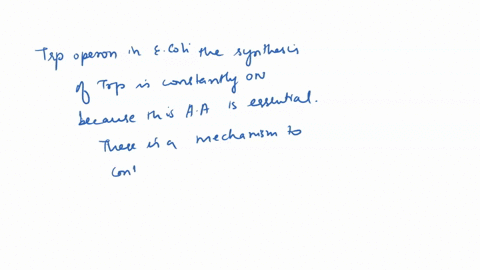 Trp operon in E.Coli the synthesis
of Trp is constantly ON
because this A.A is essential.
There is a mechanism to
con